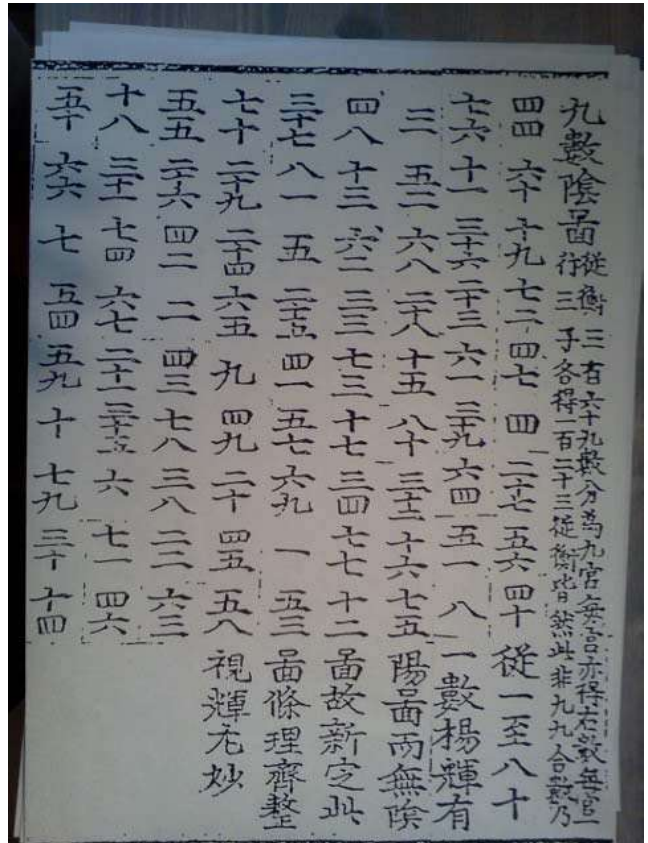 九數陰啚 從衡三百六十九數分為九宮每宮亦得右數每宮一
行三子各得一百二十三從衡皆然此非九九合數乃
四四 六十 十九 七二 四七 四 二十七 五六 四十 從一至八十
七六 十一 三十六 二十三 六一 三十九 六四 五一 八 一數楊輝有
三 五二 六八 二十八 十五 八十 三十二 十六 七五 陽啚而無陰
四八 十三 六二 三三 七三 十七 三四 七七 十二 啚故新定此
三十七 八一 五 二十五 四一 五七 六九 一 五三 啚條理齊整
七十 二十九 二十四 六五 九 四九 二十 四五 五八 視輝尤妙
五五 二十六 四二 二 四三 七八 三八 二二 六三
十八 三十一 七四 六七 二十一 三十五 六 七一 四六
五十 六六 七 五四 五九 十 七九 三十 十四